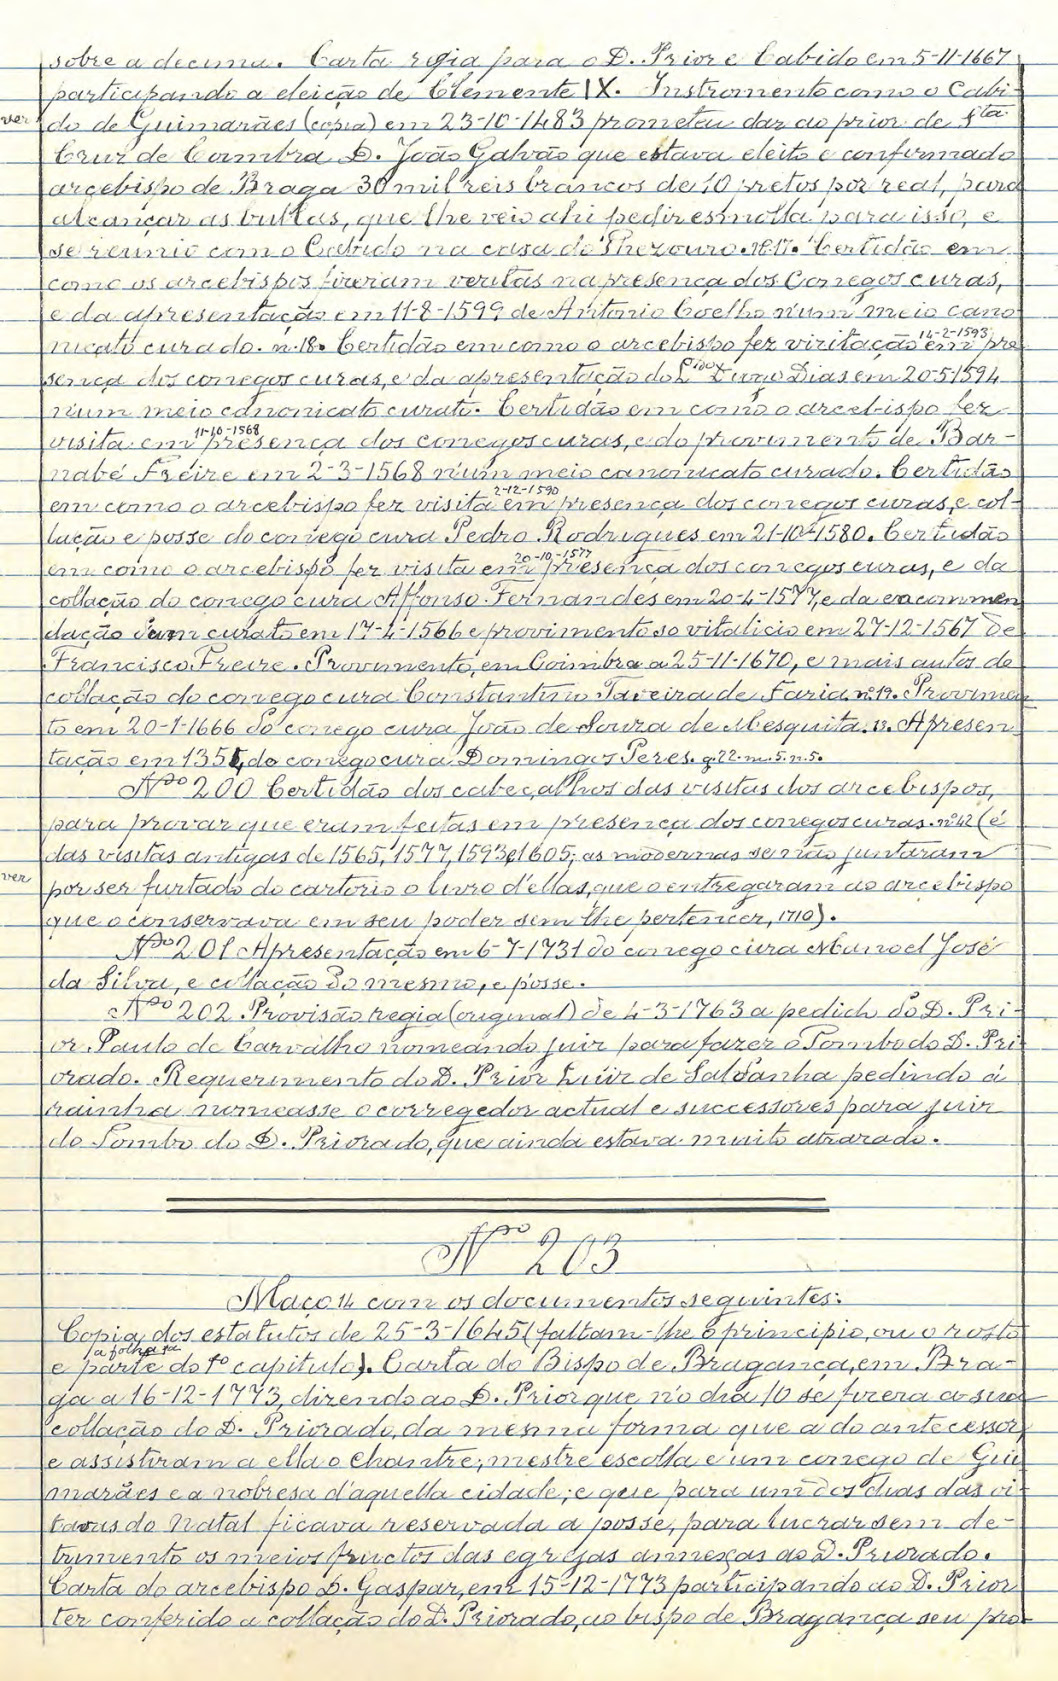 sobre a decima. Carta regia para o D. Prior e Cabido em 5-11-1667
participando a eleição de Clemente IX. Instromento como o Cabi-
ver
do de Guimarães (copia) em 23-10-1483 prometeu dar ao prior de Sta
Cruz de Coimbra D. João Galvão que estava eleito e confirmado
arcebispo de Braga 30 mil reis brancos de 10 pretos por real, para
alcançar as bullas, que lhe veio ahi pedir esmolla para isso, e
se reunio com o Cabido na casa do Thezouro. nº 17. Certidão em
como os arcebispos fizeram vezitas na presença dos Conegos curas,
e da apresentação em 11-8-1599 de Antonio Coelho n'um meio cano
nicato curado. n. 18. Certidão em como o arcebispo fez vizitação em 14-2-1593 pre
sença dos conegos curas, e da apresentação do Dias em 20-5-1594
n'um meio canonicato curato. Certidão em como o arcebispo fez
visita em 11-10-1568 presença dos conegos curas, e do provimento de Bar-
nabé Freire em 2-3-1568 n'um meio canonicato curado. Certidão
em como o arcebispo fez visita 2-12-1590 em presença dos conegos curas, e col-
lação e posse do conego cura Pedro Rodrigues em 21-10-1580. Certidão
em como o arcebispo fez visita em 20-10-1577 presença dos conegos curas, e da
collação do conego cura Affonso Fernandes em 20-4-1577, e da encommen
dação d'um curato em 17-4-1566 e provimento so vitalicio em 27-12-1567 de
Francisco Freire. Provimento, em Coimbra a 25-11-1670, e mais autos de
collação do conego cura Constantino Taveira de Faria. nº 19. Provimen
to em 20-1-1666 do conego cura João de Souza de Mesquita. 13. Apresen
tação em 1355, do conego cura Domingos Peres. g. 22. m. 5. n. 5.
Nº 200 Certidão dos cabeçalhos das visitas dos arcebispos,
para provar que eram feitas em presença dos conegos curas. nº 42 (é
das visitas antigas de 1565, 1577, 1593 e 1605; as modernas se não juntaram
ver
por ser furtado do cartorio o livro d'ellas, que o entregaram ao arcebispo
que o conservava em seu poder sem lhe pertencer, 1710).
Nº 201 Apresentação em 6-7-1731 do conego cura Manoel José
da Silva, e collação do mesmo, e posse.
Nº 202 Provisão regia (original) de 4-3-1763 a pedido do D. Pri-
or Paulo de Carvalho nomeando juiz para fazer o Tombo do D. Pri
orado. Requerimento do D. Prior Luiz de Saldanha pedindo á
rainha nomeasse o corregedor actual e successores para juiz
do Tombo do D. Priorado, que ainda estava muito atrazado.
Nº 203
Maço 14 com os documentos seguintes:
Copia dos estatutos de 25-3-1645 (faltam-lhe o principio, ou o rosto
a folha 1ª
e parte do 1º capitulo). Carta do Bispo de Bragança, em Bra-
ga a 16-12-1773, dizendo ao D. Prior que no dia 10 se fizera a sua
collação do D. Priorado, da mesma forma que a do antecessor,
e assistiram a ella o Chantre, mestre escolla e um conego de Gui
marães e a nobresa d'aquella cidade; e que para um dos dias das oi-
tavas do Natal ficava reservada a posse, para lucrar sem de-
trimento os meios fructos das egrejas annexas ao D. Priorado.
Carta do arcebispo D. Gaspar, em 15-12-1773 participando ao D. Prior
ter conferido a collação do D. Priorado, ao bispo de Bragança seu pro-